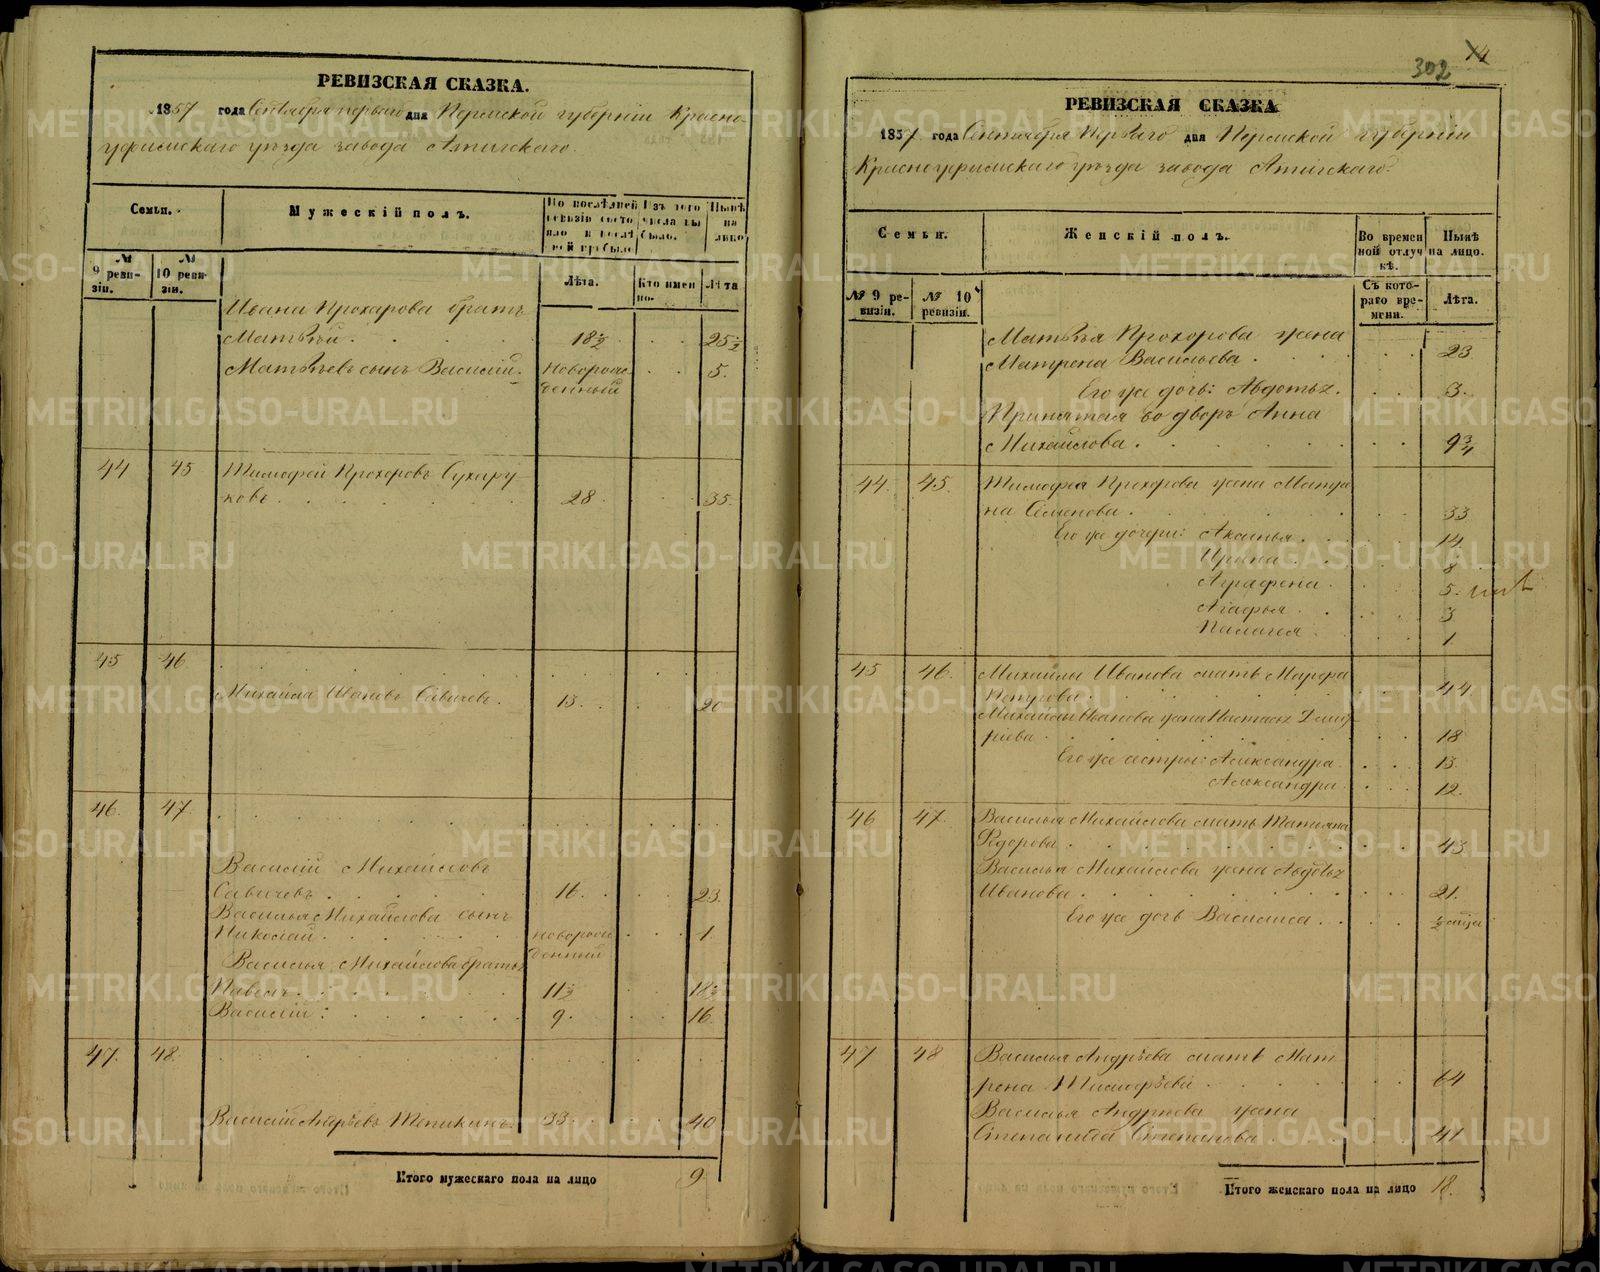 РЕВИЗСКАЯ СКАЗКА.
1857 года Сентября первого дня Пермской губернiи Красно-
уфимскаго уѣзда завода Атигскаго.
Семьи. Мужескiй полъ. По послѣдней ревизiи состояло и послѣ ней прибыло Изъ того числа выбыло. Нынѣ на лицо
№ 9 ревизiи. № 10 ревизiи. Лѣта. Когда именно. Лѣта
Ивана Прохарова братъ
Матвѣй. 18½ 25½
Матвѣевъ сынъ Василiй. новорож-
денный 5.
44 45 Тимофей Прохоровъ Сухару-
ковъ 28 35.
45 46
Михайла Ивановъ Савичевъ. 13. 20
46. 47.
Василiй Михайловъ
Савичевъ 16. 23.
Василья Михайлова сынъ
Николай новорож
денный 1.
Василья Михайлова братья
Павелъ 11½ 18½
Василiй: 9. 16.
47. 48.
Василiй Андрѣевъ Тепикинъ. 33. 40
Итого мужескаго пола на лицо 9
302
РЕВИЗСКАЯ СКАЗКА
1857. года Сентября Перваго дня Пермской губернiи
Красноуфимскаго уѣзда завода Атигскаго.
Семьи. Женскiй полъ. Во временной отлучкѣ. Нынѣ на лицо.
№ 9 ревизiи. № 10 ревизiи. Съ котораго времени. Лѣта.
Матвѣя Прохорова жена
Матрена Васильева. 23
Его же дочь: Авдотья. 3.
Принятая во дворъ Анна
Михайлова. 9¾
44. 45. Тимофея Прохорова жена Матре
на Семенова. 33
Его же дочери: Аксинья. 14
Ирина. 8
Аграфена. 5.
Агафья. 3
Палагея. 1
45 46. Михайлы Иванова мать Марфа
Петрова. 44.
Михайлы Иванова жена Настасья Дмит-
рiева. 18
Его же сестры: Александра. 13.
Александра. 12.
46 47. Василья Михайлова мать Татьяна
Федорова. 43
Василья Михайлова жена Авдотья
Иванова. 21.
Его же дочь Василиса.
47 48 Василья Андрѣева мать Мат
рена Тимофѣева. 64
Василья Андрѣева жена
Степанида Степанова. 41
Итого женскаго пола на лицо 18.
METRIKI.GASO-URAL.RU